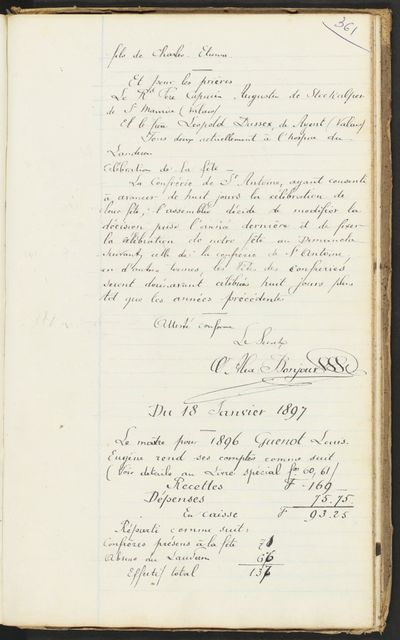 361
fils de Charles-Etienne
Et pour les prières
Le Rd Père Capucin Augustin de Stockalper
de St Maurice (Valais)
Et le frère Léopold Dussex, de Ayent (Valais)
Tous deux actuellement à l'hospice du
Landeron
Célébration de la fête —
La Confrérie de St Antoine, ayant consenti
à avancer de huit jours la célébration de
leur fête, l'assemblée décide de modifier la
décision prise l'année dernière et de fixer
la célébration de notre fête au Dimanche
suivant, celle de la confrérie de St Antoine,
en d'autres termes, les fêtes des confréries
seront dorénavant célébrées huit jours plus
tôt que les années précédentes
Attesté conforme
Le Secrét
Alex Bonjour
Du 18 Janvier 1897
Le maître pour 1896 Guenot Louis
Eugène rend ses comptes comme suit
(Voir détails au Livre spécial fo 60, 61)
Recettes F 169
Dépenses 75.75
En caisse F 93.25
Réparti comme suit:
Confrères présents à la fête 71
Absents au Landeron 66
Effectif total 137